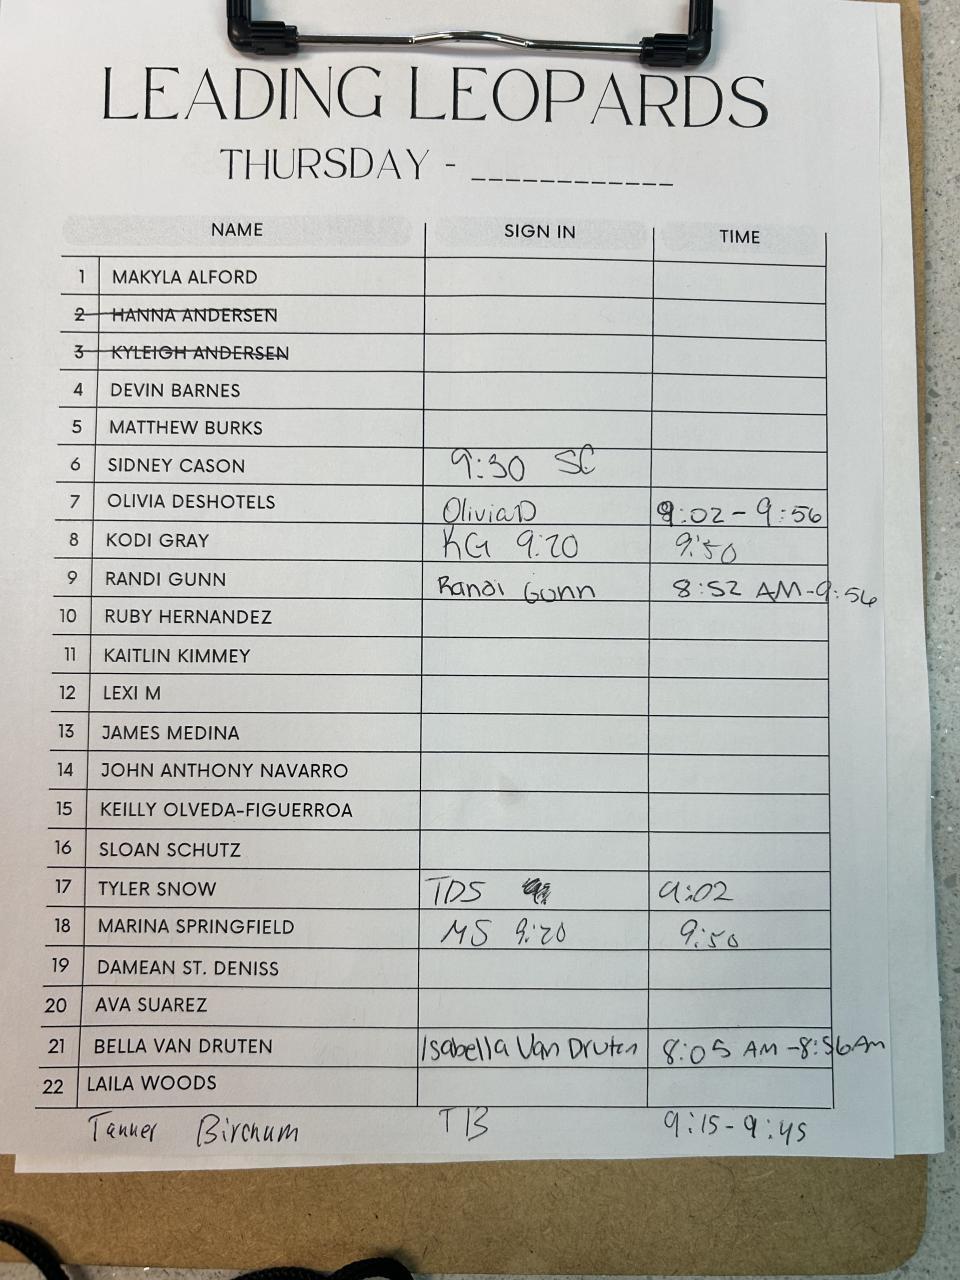 LEADING LEOPARDS
THURSDAY - ____________
NAME SIGN IN TIME
1 MAKYLA ALFORD
2 HANNA ANDERSEN
3 KYLEIGH ANDERSEN
4 DEVIN BARNES
5 MATTHEW BURKS
6 SIDNEY CASON 9:30 SC
7 OLIVIA DESHOTELS OliviaD 9:02 - 9:56
8 KODI GRAY KG 9:20 9:50
9 RANDI GUNN Randi Gunn 8:52 AM-9:56
10 RUBY HERNANDEZ
11 KAITLIN KIMMEY
12 LEXI M
13 JAMES MEDINA
14 JOHN ANTHONY NAVARRO
15 KEILLY OLVEDA-FIGUERROA
16 SLOAN SCHUTZ
17 TYLER SNOW TDS 9:02
18 MARINA SPRINGFIELD MS 9:20 9:50
19 DAMEAN ST. DENISS
20 AVA SUAREZ
21 BELLA VAN DRUTEN Isabella Van Druten 8:05 AM -8:56Am
22 LAILA WOODS
Tanner Birchum TB 9:15-9:45